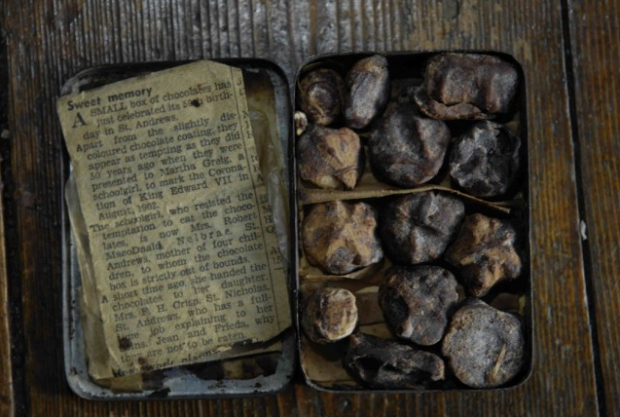 Sweet memory
A SMALL box of chocolates has
just celebrated its birth-
day in St. Andrews.
Apart from the slightly dis-
coloured chocolate coating, they
appear as tempting as they did
50 years ago when they were
presented to Martha Greig, a
schoolgirl, to mark the Corona-
tion of King Edward VII in
August, 1902.
The schoolgirl, who resisted the
temptation to eat the choco-
lates, is now Mrs. Robert
MacDonald, St.
Andrews, mother of four chil-
dren, to whom the chocolate
box is strictly out of bounds.
A short time ago, she handed the
chocolates to her daughter,
Mrs. F. H. Crisp, St. Nicholas,
St. Andrews, who has a full-
time job explaining to her
Jean and Frieda, why
they are not to be eaten.